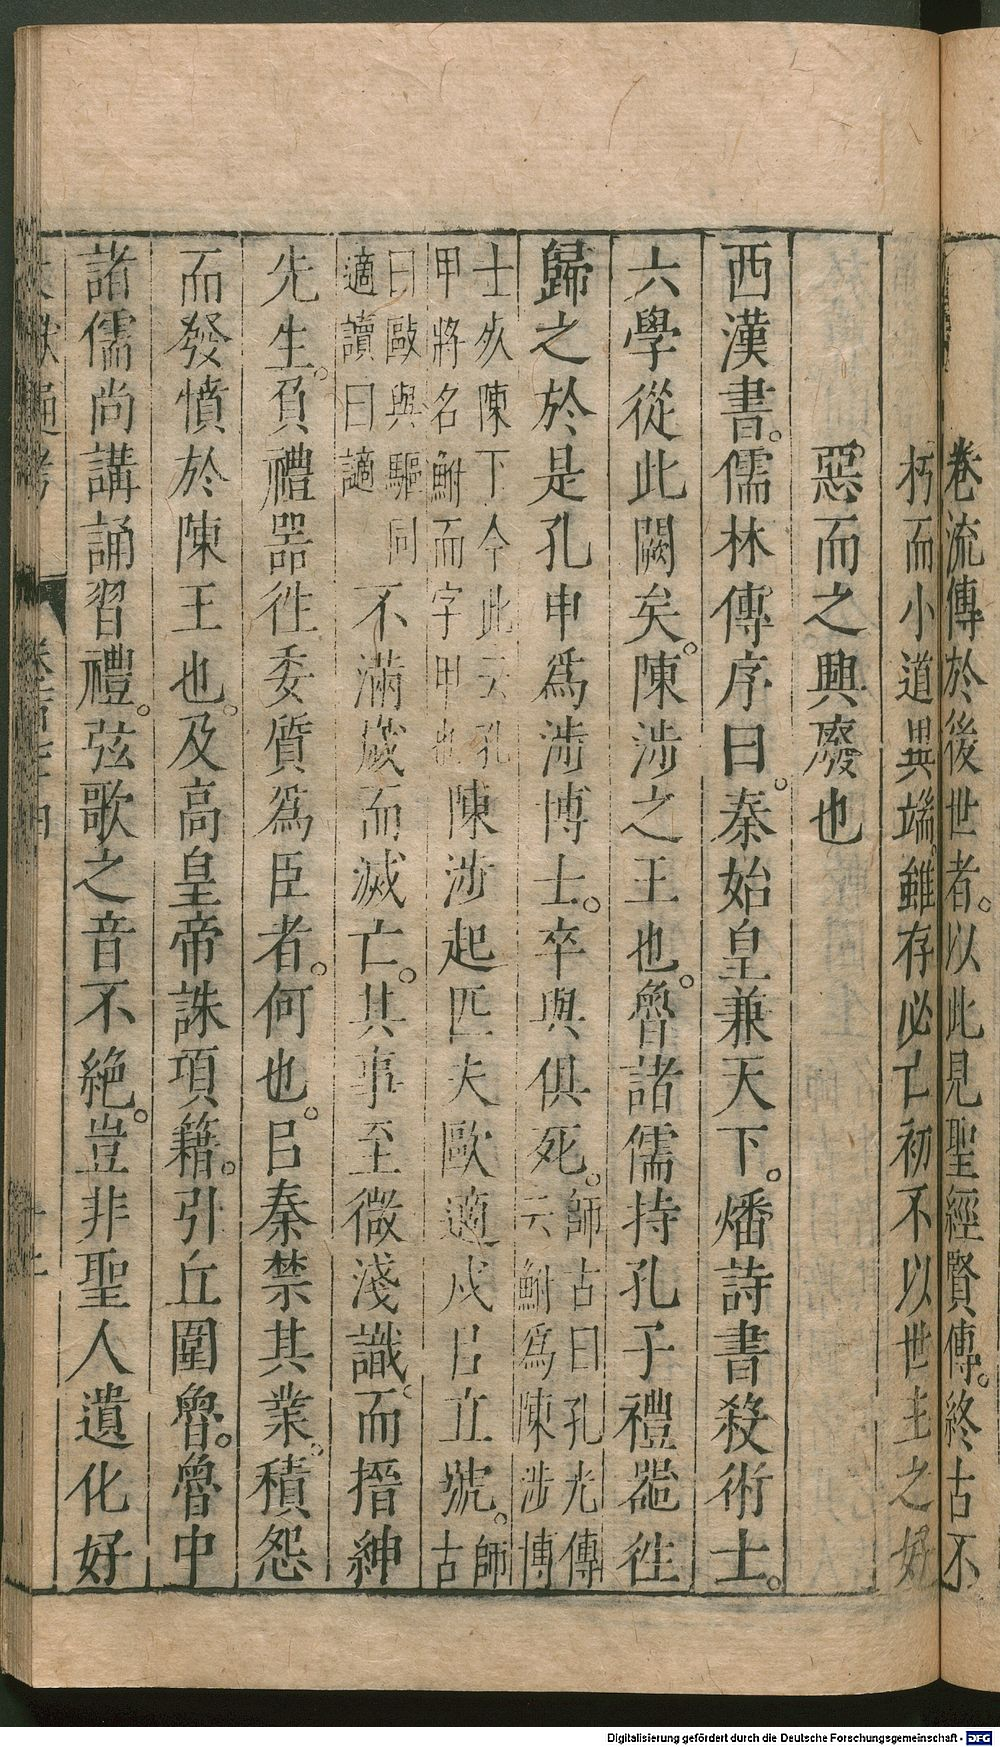 卷流傳於後世者。以此見聖經賢傳。終古不
朽而小道異端。雖存必亡初不以世主之好
惡而之興廢也
西漢書。儒林傳序曰。秦始皇兼天下。燔詩書殺術士。
六學從此闕矣。陳涉之王也。魯諸儒持孔子禮器徃
歸之於是孔申爲涉博士。卒與俱死。師古曰孔光傳
云鮒爲陳涉博
士㱥陳下今此云孔
甲將名鮒而字甲也陳涉起匹夫歐適戍㠯立號。師
古
曰敺與驅同
適讀曰讁不滿歲而滅亡。其事至微淺識。而搢紳
先生。負禮器徃委質爲臣者。何也。㠯秦禁其業。積怨
而發憤於陳王也。及高皇帝誅項籍。引丘圍魯。魯中
諸儒尚講誦習禮。弦歌之音不絶。豈非聖人遺化好
Digitalisierung gefördert durch die Deutsche Forschungsgemeinschaft - DFG